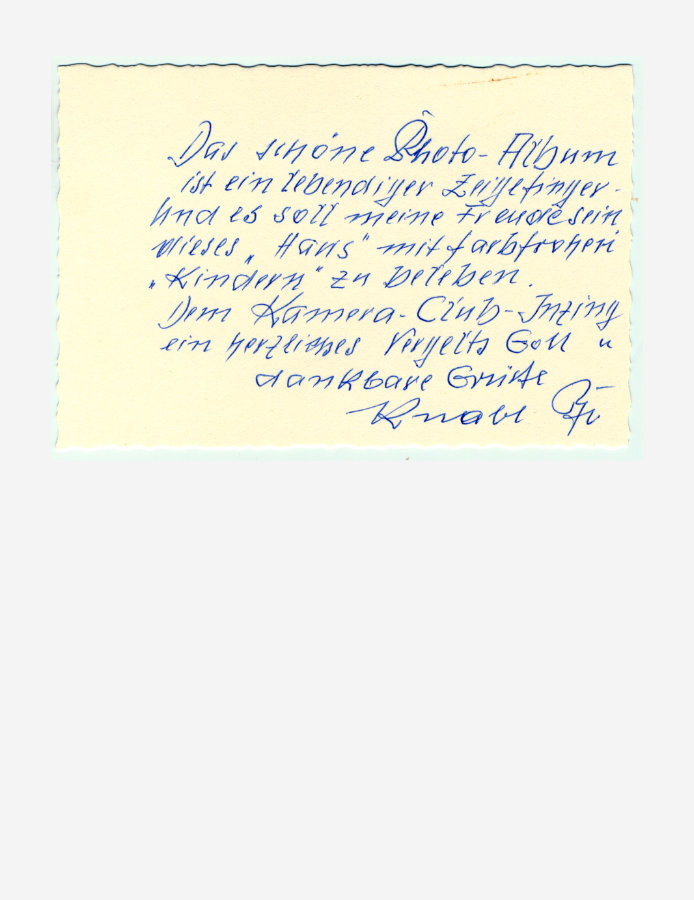 Das schöne Photo-Album
ist ein lebendiger Zeigefinger.
Und es soll meine Freude sein
dieses „Haus" mit farbfrohen
„Kindern" zu beleben.
Dem Kamera-Club-Inzing
ein herzliches Vergelts Gott u
dankbare Grüße
Knabl